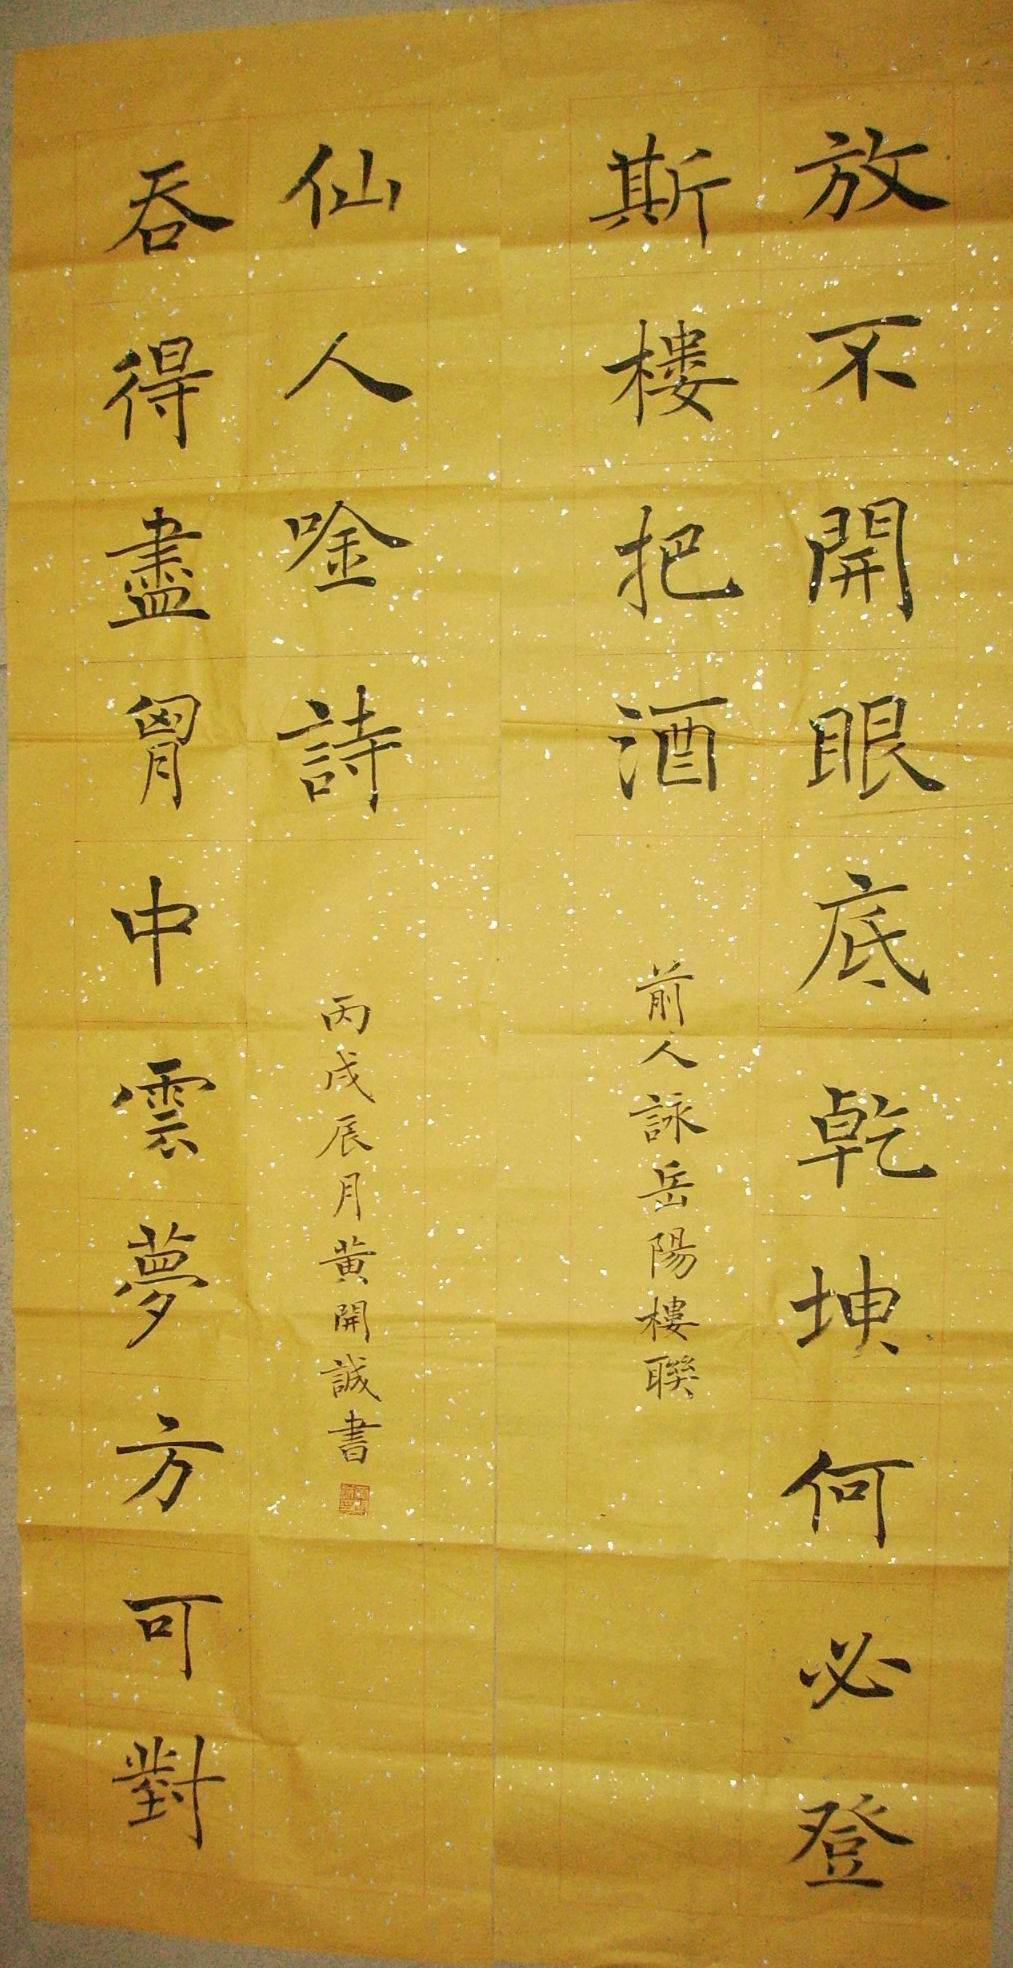 放不開眼底乾坤何必登
斯樓把酒
前人詠岳陽樓聯
吞得盡胷中雲夢方可對
仙人唫詩
丙戌辰月黃開誠書